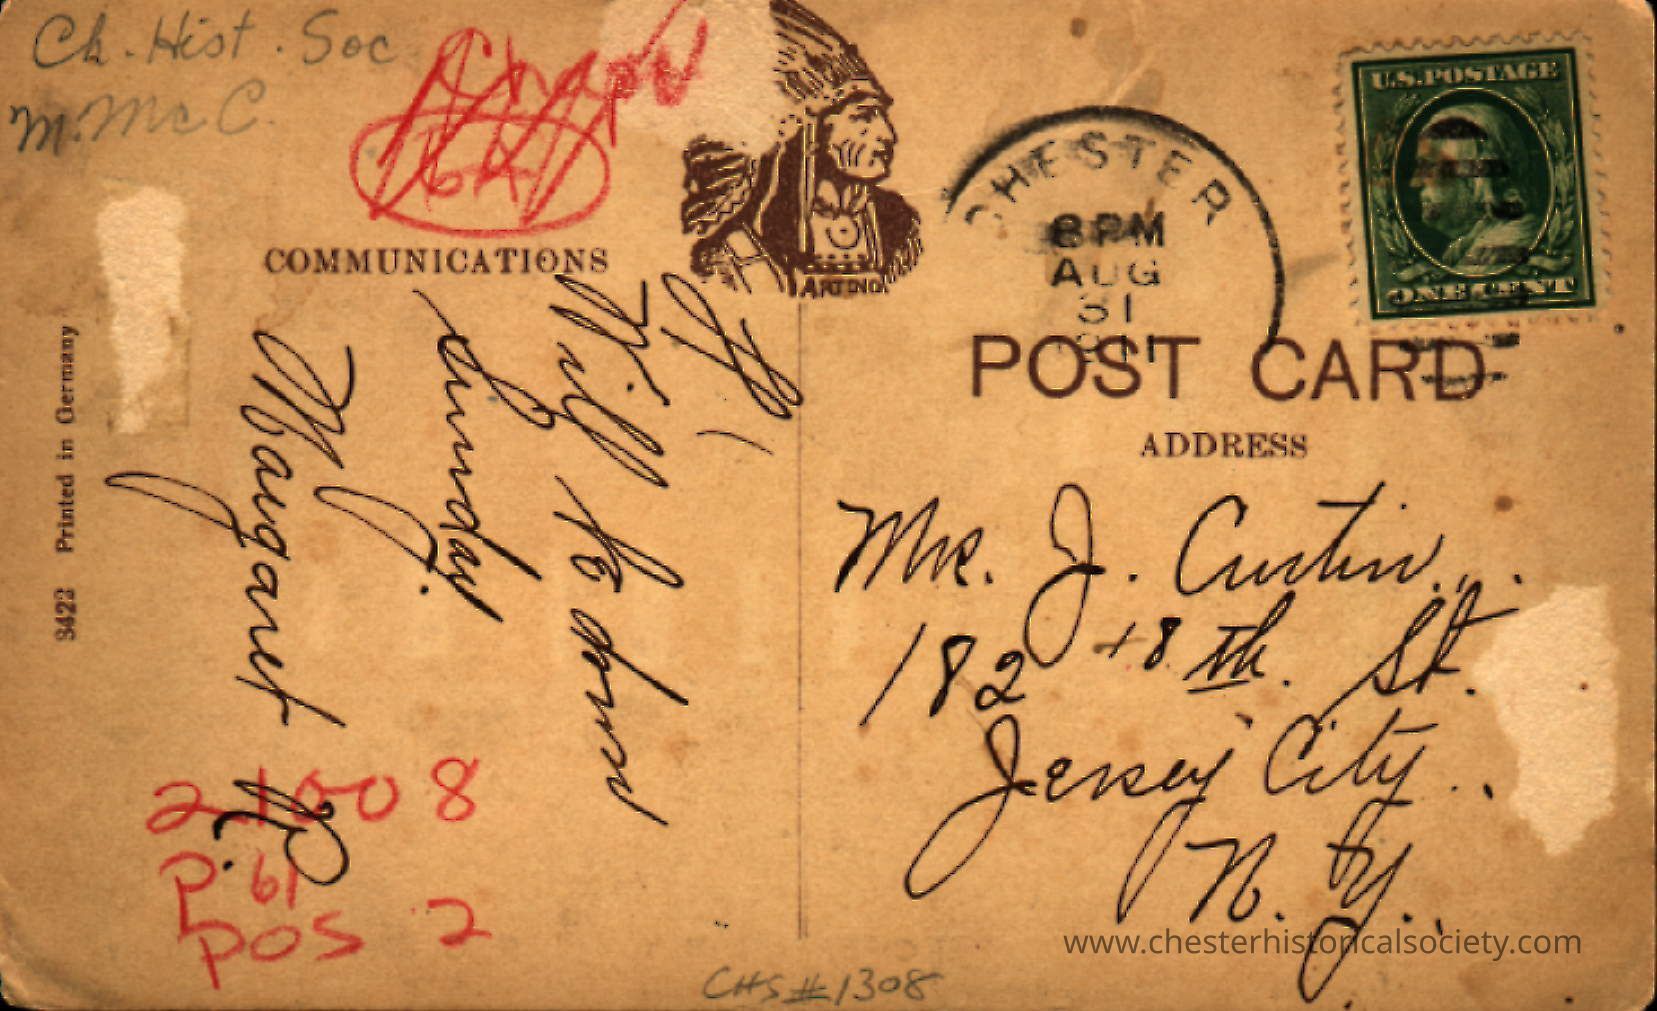 Ch. Hist. Soc
M. McC.
COMMUNICATIONS
ARTINO
CHESTER
8 PM
AUG
31
1911
U.S. POSTAGE
ONE CENT
POST CARD
ADDRESS
3423 Printed in Germany
Will be down
Sunday.
Margaret
Mrs. J. Curtin.
182 18th. St.
Jersey City.
N. Y.
21008
P. 61
POS 2
CHS #1308
www.chesterhistoricalsociety.com